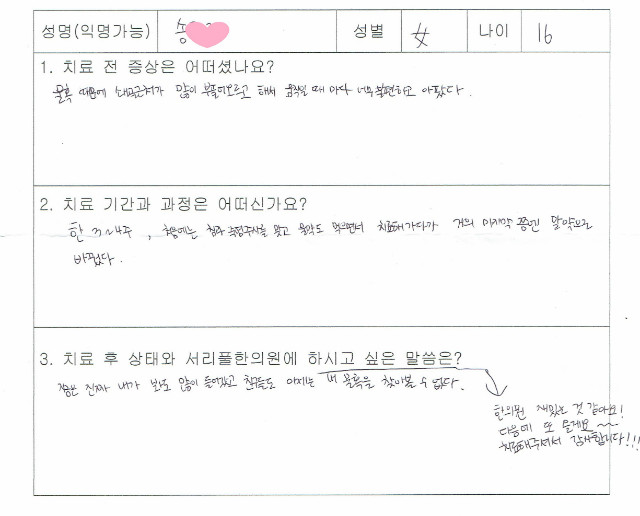 성명(익명가능) 송 성별 女 나이 16
1. 치료 전 증상은 어떠셨나요?
물혹 때문에 많이 부풀어오르고 해서 움직일 때 마다 너무 불편하고 아팠다.
2. 치료 기간과 과정은 어떠신가요?
한 3~4주, 처음에는 침과 주사를 맞고 물약도 먹으면서 치료해가다가 거의 마지막 쯤엔 알약으로
바꿨다.
3. 치료 후 상태와 서리풀한의원에 하시고 싶은 말씀은?
지금은 진짜 내가 봐도 많이 들어갔고 친구들도 이제는 내 물혹을 찾아볼 수 없다.
한의원 재밌는 것 같아요!
다음에 또 올게요~~
치료해주셔서 감사합니다!!!